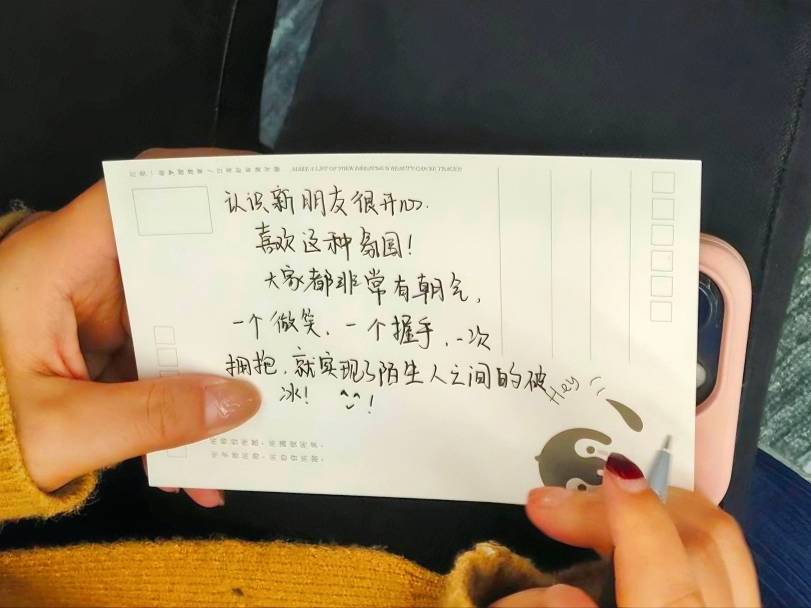 MAKE A LIST OF YOUR
认识新朋友很开心.
喜欢这种氛围!
大家都非常有朝气,
一个微笑、一个握手、一次
拥抱,就实现了陌生人之间的破
冰! ^^!
Hey